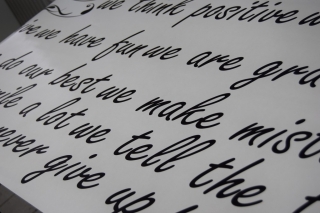 we think positive
we have fun we are
do our best we make
a lot we tell the
never give up